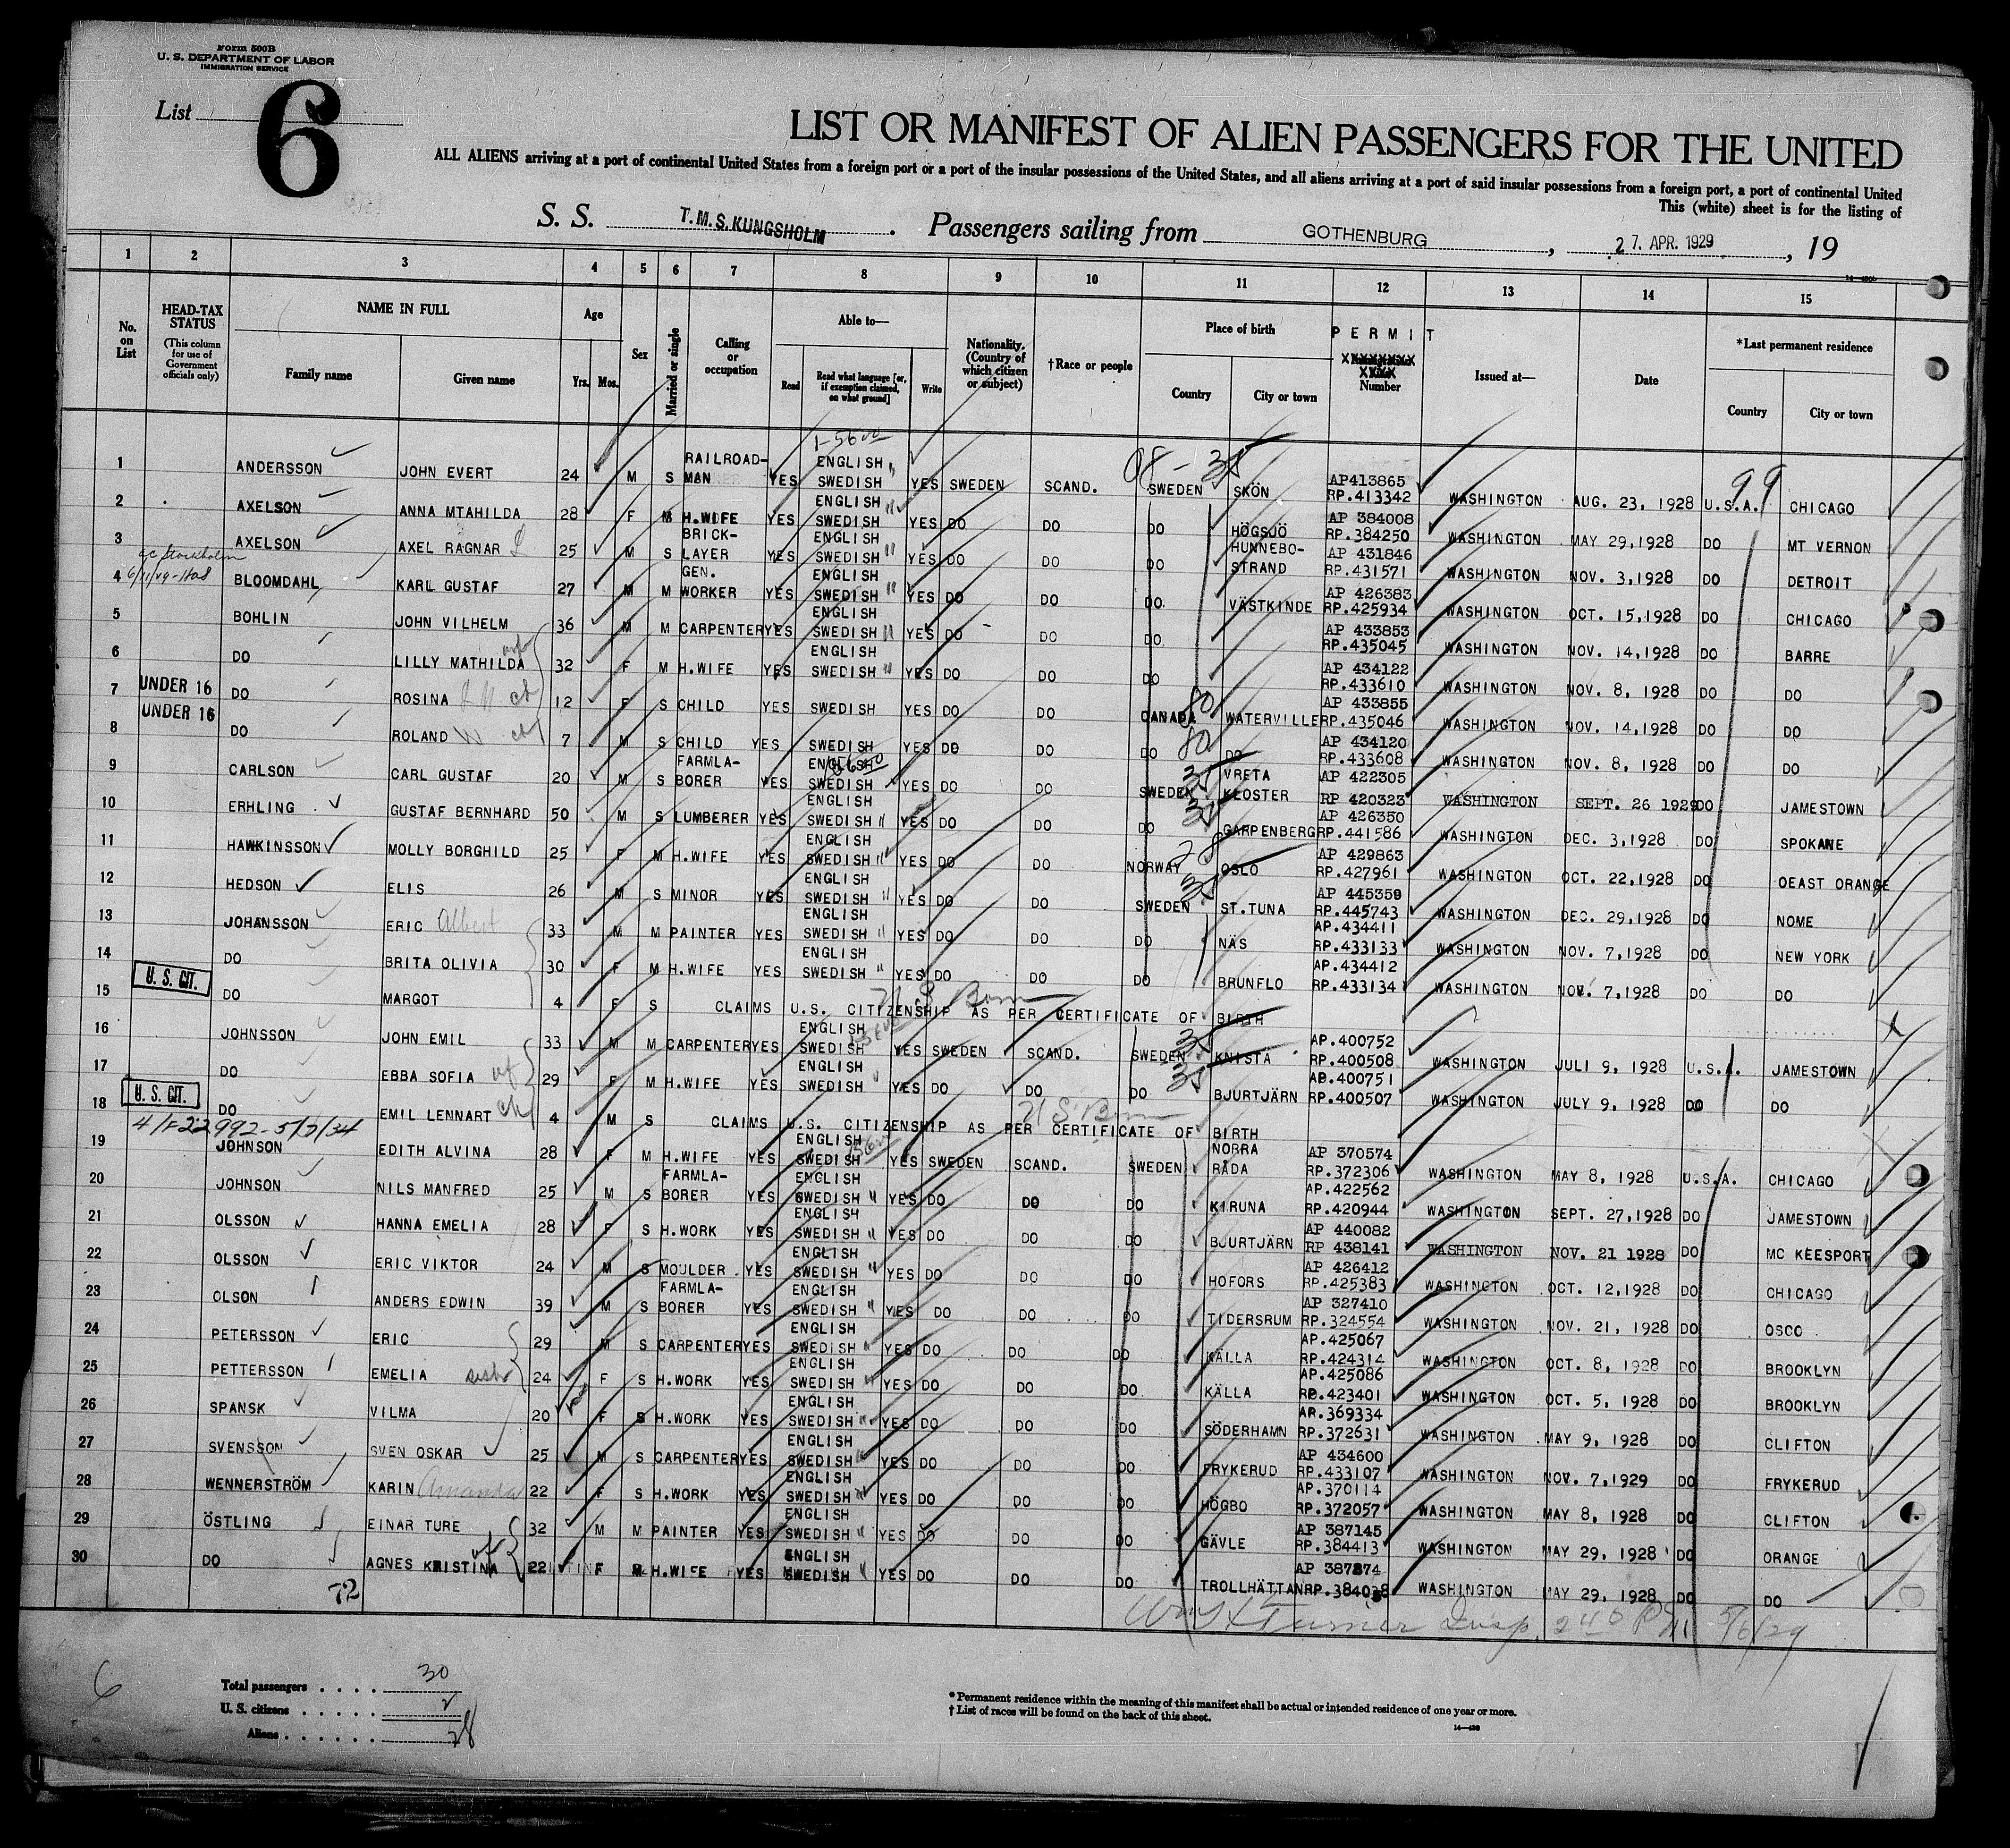 Form 500B
U. S. DEPARTMENT OF LABOR
IMMIGRATION SERVICE
List 6
LIST OR MANIFEST OF ALIEN PASSENGERS FOR THE UNITED
ALL ALIENS arriving at a port of continental United States from a foreign port or a port of the insular possessions of the United States, and all aliens arriving at a port of said insular possessions from a foreign port, a port of continental United
This (white) sheet is for the listing of
S. S. T.M.S. KUNGSHOLM . Passengers sailing from GOTHENBURG , 27. APR. 1929 , 19
1 2 3 4 5 6 7 8 9 10 11 12 13 14 15
No. on List
HEAD-TAX STATUS (This column for use of Government officials only)
NAME IN FULL Family name Given name
Age Yrs. Mos.
Sex
Married or single
Calling or occupation
Able to— Read Read what language [or, if exemption claimed, on what ground] Write
Nationality. (Country of which citizen or subject)
†Race or people
Place of birth Country City or town
PERMIT Number
Issued at—
Date
*Last permanent residence Country City or town
1 ANDERSSON JOHN EVERT 24 M S RAILROAD-MAN YES ENGLISH SWEDISH YES SWEDEN SCAND. SWEDEN SKÖN AP413865 RP.413342 WASHINGTON AUG. 23, 1928 U.S.A. CHICAGO
2 AXELSON ANNA MTAHILDA 28 F M H.WIFE YES ENGLISH SWEDISH YES DO DO DO HÖGSJÖ AP 384008 RP.384250 WASHINGTON MAY 29,1928 DO MT VERNON
3 AXELSON AXEL RAGNAR 25 M S BRICK-LAYER YES ENGLISH SWEDISH YES DO DO DO HUNNEBO-STRAND AP 431846 RP.431571 WASHINGTON NOV. 3,1928 DO DETROIT
4 BLOOMDAHL KARL GUSTAF 27 M M GEN. WORKER YES ENGLISH SWEDISH YES DO DO DO VÄSTKINDE AP 426383 RP.425934 WASHINGTON OCT. 15,1928 DO CHICAGO
5 BOHLIN JOHN VILHELM 36 M M CARPENTER YES ENGLISH SWEDISH YES DO DO DO AP 433853 RP.435045 WASHINGTON NOV. 14,1928 DO BARRE
6 DO LILLY MATHILDA 32 F M H.WIFE YES ENGLISH SWEDISH YES DO DO DO AP 434122 RP.433610 WASHINGTON NOV. 8, 1928 DO DO
7 UNDER 16 DO ROSINA 12 F S CHILD YES SWEDISH YES DO DO CANADA WATERVILLE AP 433855 RP.435046 WASHINGTON NOV. 14,1928 DO DO
8 UNDER 16 DO ROLAND 7 M S CHILD YES SWEDISH YES DO DO DO DO AP 434120 RP.433608 WASHINGTON NOV. 8, 1928 DO DO
9 CARLSON CARL GUSTAF 20 M S FARMLA-BORER YES ENGLISH SWEDISH YES DO DO SWEDEN VRETA KLOSTER AP 422305 RP 420323 WASHINGTON SEPT. 26 1929 DO JAMESTOWN
10 ERHLING GUSTAF BERNHARD 50 M S LUMBERER YES ENGLISH SWEDISH YES DO DO DO GARPENBERG AP 426350 RP.441586 WASHINGTON DEC. 3,1928 DO SPOKANE
11 HAWKINSSON MOLLY BORGHILD 25 F M H.WIFE YES ENGLISH SWEDISH YES DO DO NORWAY OSLO AP 429863 RP.427961 WASHINGTON OCT. 22,1928 DO OEAST ORANGE
12 HEDSON ELIS 26 M S MINOR YES ENGLISH SWEDISH YES DO DO SWEDEN ST.TUNA AP 445359 RP.445743 WASHINGTON DEC. 29,1928 DO NOME
13 JOHANSSON ERIC Albert 33 M M PAINTER YES ENGLISH SWEDISH YES DO DO DO NÄS AP.434411 RP.433133 WASHINGTON NOV. 7,1928 DO NEW YORK
14 DO BRITA OLIVIA 30 F M H.WIFE YES ENGLISH SWEDISH YES DO DO DO BRUNFLO AP.434412 RP.433134 WASHINGTON NOV. 7,1928 DO DO
15 U. S. CIT. DO MARGOT 4 F S CLAIMS U.S. CITIZENSHIP AS PER CERTIFICATE OF BIRTH
16 JOHNSSON JOHN EMIL 33 M M CARPENTER YES ENGLISH SWEDISH YES SWEDEN SCAND. SWEDEN KNISTA AP.400752 RP.400508 WASHINGTON JULI 9, 1928 U.S.A. JAMESTOWN
17 DO EBBA SOFIA 29 F M H.WIFE YES ENGLISH SWEDISH YES DO DO DO BJURTJÄRN AP.400751 RP.400507 WASHINGTON JULY 9, 1928 DO DO
18 U. S. CIT. DO EMIL LENNART 4 M S CLAIMS U.S. CITIZENSHIP AS PER CERTIFICATE OF BIRTH
19 JOHNSON EDITH ALVINA 28 F M H.WIFE YES ENGLISH SWEDISH YES SWEDEN SCAND. SWEDEN NORRA RÅDA AP 370574 RP.372306 WASHINGTON MAY 8, 1928 U.S.A. CHICAGO
20 JOHNSON NILS MANFRED 25 M S FARMLA-BORER YES ENGLISH SWEDISH YES DO DO DO KIRUNA AP.422562 RP.420944 WASHINGTON SEPT. 27,1928 DO JAMESTOWN
21 OLSSON HANNA EMELIA 28 F S H.WORK YES ENGLISH SWEDISH YES DO DO DO BJURTJÄRN AP 440082 RP 438141 WASHINGTON NOV. 21 1928 DO MC KEESPORT
22 OLSSON ERIC VIKTOR 24 M S MOULDER YES ENGLISH SWEDISH YES DO DO DO HOFORS AP 426412 RP.425383 WASHINGTON OCT. 12,1928 DO CHICAGO
23 OLSON ANDERS EDWIN 39 M S FARMLA-BORER YES ENGLISH SWEDISH YES DO DO DO TIDERSRUM AP 327410 RP.324554 WASHINGTON NOV. 21, 1928 DO OSCO
24 PETERSSON ERIC 29 M S CARPENTER YES ENGLISH SWEDISH YES DO DO DO KÄLLA AP.425067 RP.424314 WASHINGTON OCT. 8, 1928 DO BROOKLYN
25 PETTERSSON EMELIA 24 F S H.WORK YES ENGLISH SWEDISH YES DO DO DO KÄLLA AP.425086 RP.423401 WASHINGTON OCT. 5, 1928 DO BROOKLYN
26 SPANSK VILMA 20 F S H.WORK YES ENGLISH SWEDISH YES DO DO DO SÖDERHAMN AP.369334 RP.372631 WASHINGTON MAY 9, 1928 DO CLIFTON
27 SVENSSON SVEN OSKAR 25 M S CARPENTER YES ENGLISH SWEDISH YES DO DO DO FRYKERUD AP 434600 RP.433107 WASHINGTON NOV. 7,1929 DO FRYKERUD
28 WENNERSTRÖM KARIN Amanda 22 F S H.WORK YES ENGLISH SWEDISH YES DO DO DO HÖGBO AP.370114 RP.372057 WASHINGTON MAY 8, 1928 DO CLIFTON
29 ÖSTLING EINAR TURE 32 M M PAINTER YES ENGLISH SWEDISH YES DO DO DO GÄVLE AP 387145 RP.384413 WASHINGTON MAY 29, 1928 DO ORANGE
30 DO AGNES KRISTINA 22 F M H.WIFE YES ENGLISH SWEDISH YES DO DO DO TROLLHÄTTAN AP 387874 RP.384038 WASHINGTON MAY 29, 1928 DO DO
72
Turner Insp. 5/6/29
6
Total passengers . . . . 30
U. S. citizens . . . . . 2
Aliens . . . . . . 28
* Permanent residence within the meaning of this manifest shall be actual or intended residence of one year or more.
† List of races will be found on the back of this sheet.